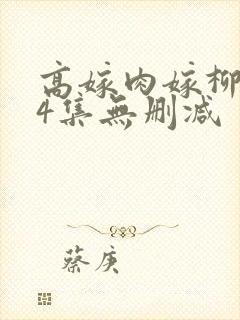 高嫁肉嫁柳
4集無删减
蔡庚